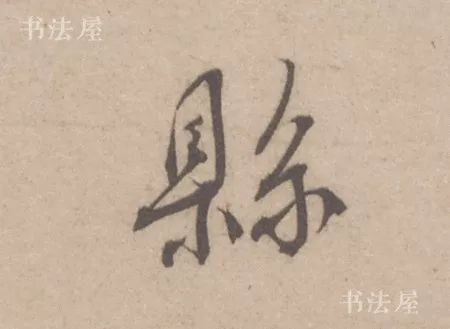 书法屋
縣
书法屋